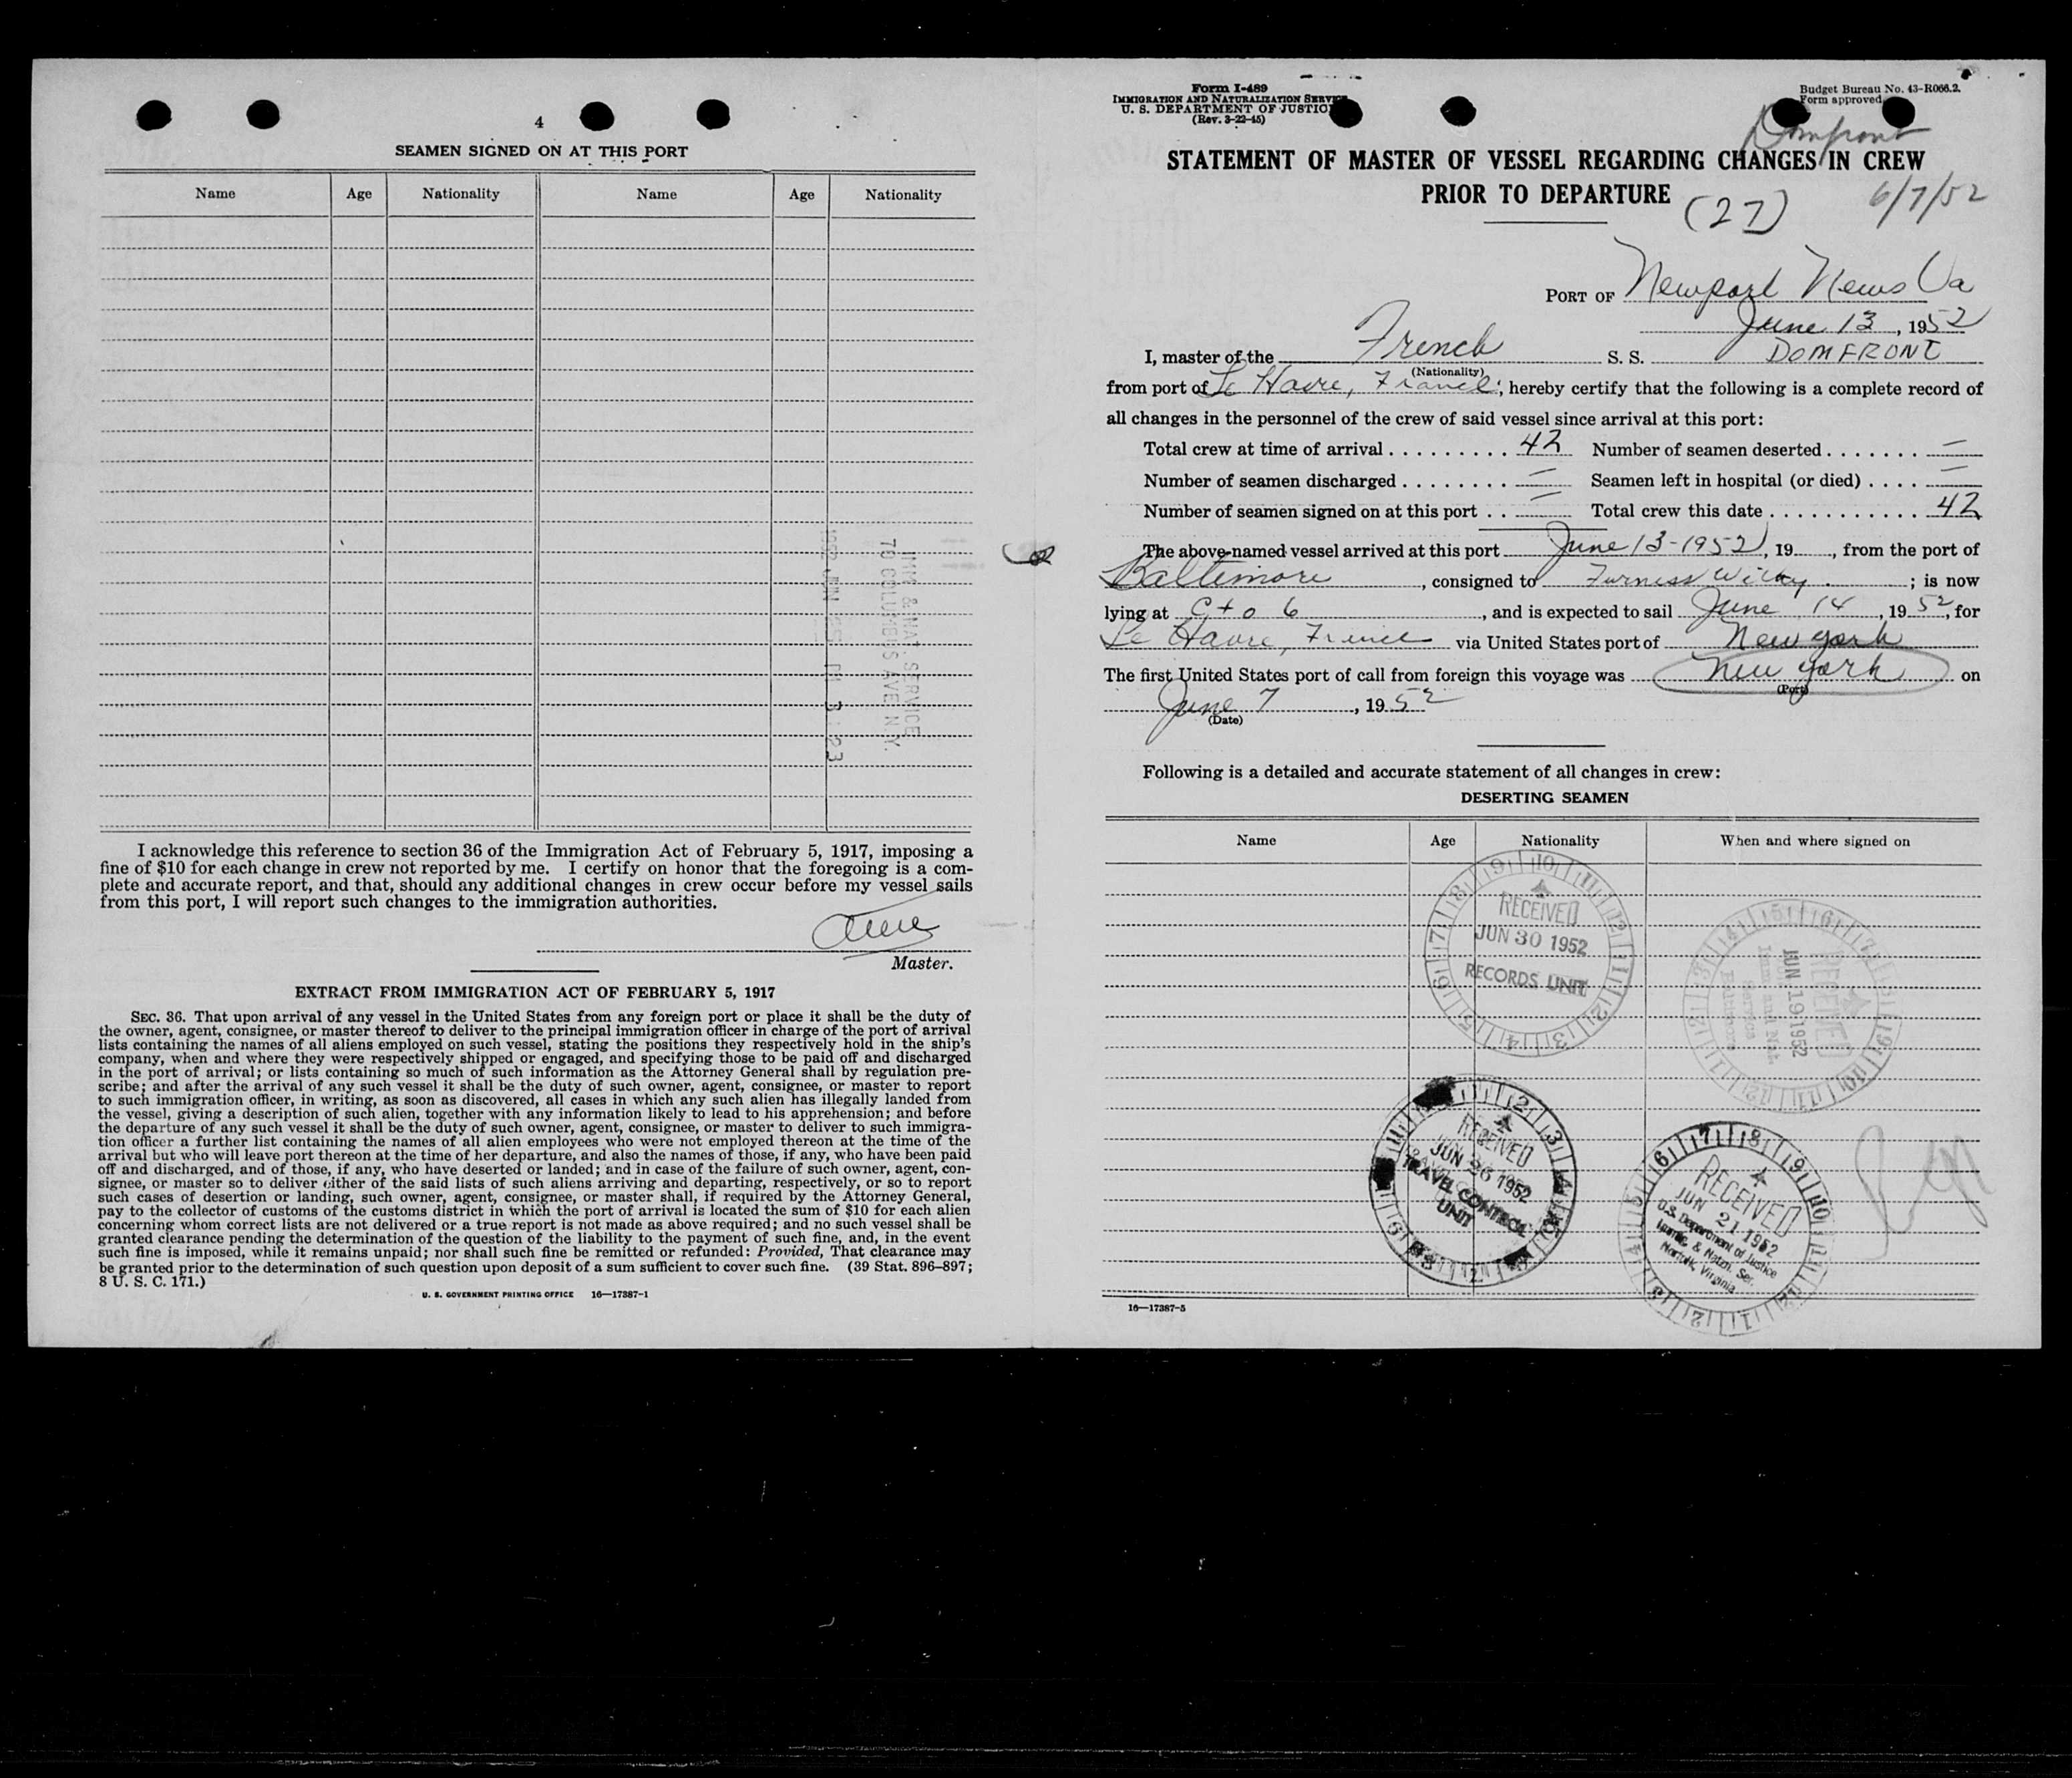 4
SEAMEN SIGNED ON AT THIS PORT
Name Age Nationality Name Age Nationality
IMM & NAT. SERVICE
70 COLUMBUS AVE N.Y.
I acknowledge this reference to section 36 of the Immigration Act of February 5, 1917, imposing a
fine of $10 for each change in crew not reported by me. I certify on honor that the foregoing is a com-
plete and accurate report, and that, should any additional changes in crew occur before my vessel sails
from this port, I will report such changes to the immigration authorities.
Master.
EXTRACT FROM IMMIGRATION ACT OF FEBRUARY 5, 1917
SEC. 36. That upon arrival of any vessel in the United States from any foreign port or place it shall be the duty of
the owner, agent, consignee, or master thereof to deliver to the principal immigration officer in charge of the port of arrival
lists containing the names of all aliens employed on such vessel, stating the positions they respectively hold in the ship's
company, when and where they were respectively shipped or engaged, and specifying those to be paid off and discharged
in the port of arrival; or lists containing so much of such information as the Attorney General shall by regulation pre-
scribe; and after the arrival of any such vessel it shall be the duty of such owner, agent, consignee, or master to report
to such immigration officer, in writing, as soon as discovered, all cases in which any such alien has illegally landed from
the vessel, giving a description of such alien, together with any information likely to lead to his apprehension; and before
the departure of any such vessel it shall be the duty of such owner, agent, consignee, or master to deliver to such immigra-
tion officer a further list containing the names of all alien employees who were not employed thereon at the time of the
arrival but who will leave port thereon at the time of her departure, and also the names of those, if any, who have been paid
off and discharged, and of those, if any, who have deserted or landed; and in case of the failure of such owner, agent, con-
signee, or master so to deliver either of the said lists of such aliens arriving and departing, respectively, or so to report
such cases of desertion or landing, such owner, agent, consignee, or master shall, if required by the Attorney General,
pay to the collector of customs of the customs district in which the port of arrival is located the sum of $10 for each alien
concerning whom correct lists are not delivered or a true report is not made as above required; and no such vessel shall be
granted clearance pending the determination of the question of the liability to the payment of such fine, and, in the event
such fine is imposed, while it remains unpaid; nor shall such fine be remitted or refunded: Provided, That clearance may
be granted prior to the determination of such question upon deposit of a sum sufficient to cover such fine. (39 Stat. 896–897;
8 U. S. C. 171.)
U. S. GOVERNMENT PRINTING OFFICE 16—17387-1
Form I-489
IMMIGRATION AND NATURALIZATION SERVICE
U. S. DEPARTMENT OF JUSTICE
(Rev. 3-22-45)
Budget Bureau No. 43-R066.2.
Form approved
Domfront
STATEMENT OF MASTER OF VESSEL REGARDING CHANGES IN CREW
PRIOR TO DEPARTURE
(27)
6/7/52
PORT OF Newport News Va
June 13, 1952
I, master of the French S. S. DOMFRONT
(Nationality)
from port of Le Havre, France; hereby certify that the following is a complete record of
all changes in the personnel of the crew of said vessel since arrival at this port:
Total crew at time of arrival 42 Number of seamen deserted —
Number of seamen discharged — Seamen left in hospital (or died) —
Number of seamen signed on at this port — Total crew this date 42
The above-named vessel arrived at this port June 13-1952, 19, from the port of
Baltimore, consigned to Furness Withy; is now
lying at C+o 6, and is expected to sail June 14, 1952, for
Le Havre, France via United States port of New York
The first United States port of call from foreign this voyage was New York on
(Port)
June 7, 1952
(Date)
Following is a detailed and accurate statement of all changes in crew:
DESERTING SEAMEN
Name Age Nationality When and where signed on
RECEIVED
JUN 30 1952
RECORDS UNIT
RECEIVED
JUN 19 1952
Imm. and Nat.
Service
Baltimore
RECEIVED
JUN 26 1952
TRAVEL CONTROL
UNIT
RECEIVED
JUN 21 1952
U.S. Department of Justice
Immig. & Natzn. Ser.
Norfolk, Virginia
16—17387-5